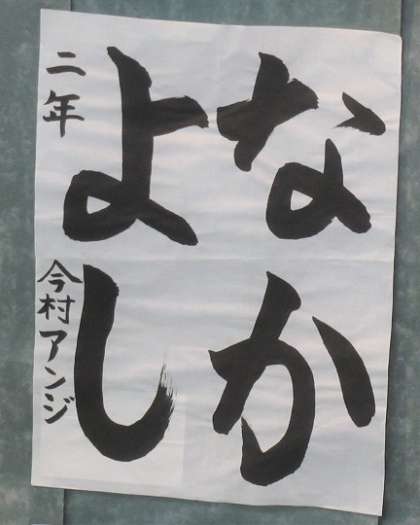 なか
よし
二年 今村アンジ